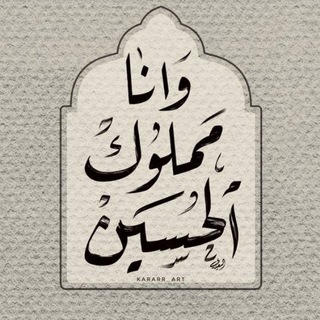 وَانا
مَملوُكْ
اَلحُسَينْ
KARARR_ART